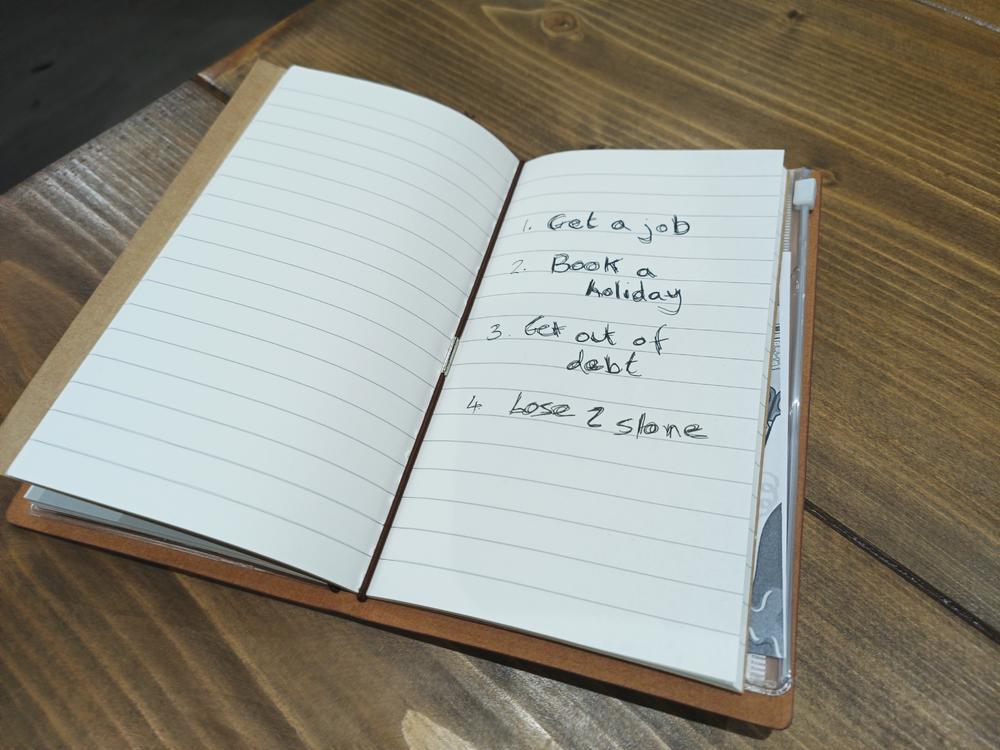 1. Get a job
2. Book a
holiday
3. Get out of
debt
4 Lose 2 stone